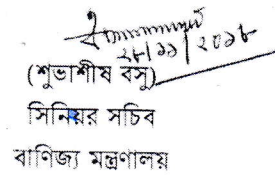 ২৮/১১/২০১৮
(শুভাশীষ বসু)
সিনিয়র সচিব
বাণিজ্য মন্ত্রণালয়